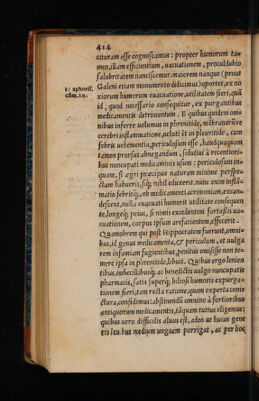 424
cituram esse cognoscimus: propter humorum ta-
men, illam efficientium, vacuationem, proculdubio
salubritatem nanciscemur, maiorem nanque (prout
1: aphoris. Galeni etiam monumento didicimus) oportet, ex no
com. 24. xiorum humorum evacuatione, utilitatem fieri, quã
id, quod necessario consequitur, ex purgantibus
medicamentis detrimentum. E quibus quidem om-
nibus inferre volumus in phrenitide, 
cerebri inflammatione, veluti & in pleuritide, cum
febris vehementia, periculosum esse, haudquaquam
tamen prorsus abnegandum, solutivi à recentiori-
bus nuncupati medicaminis usum: periculosum in-
quam, si egri præcipue naturam minime perspe-
ctam habueris,
matio febrisq́;, ob medicamenti acrimoniam,
descent, nulla evacuati humoris utilitate consequen
te, longeq́; peius, si nimis excedentem fortassis va-
cuationem, corpus ipsum arefacientem, effecerit.
Quamobrem qui post Hippocratem fuerunt, omni-
bus, id genus medicamenta, & periculum, et vulga
rem infamiam fugientibus, penitus omisisse non te-
mere ipsa in phrenitide, libuit. Quibus ergo lenien
tibus, imbecillibusq́; ac benedictis vulgo nuncupatis
pharmacis, satis superq́; biliosi humoris expurga-
tionem fieri, tam recta ratione, quam experta conie
ctura, confidimus: abstinendũ omnino à fortioribus
antiquorum medicamentis, tãquam tutius eligemus:
quibus vero difficilis alvus est, adeo ut huius gene
ris levibus medium unguem porrigat, ac per hoc